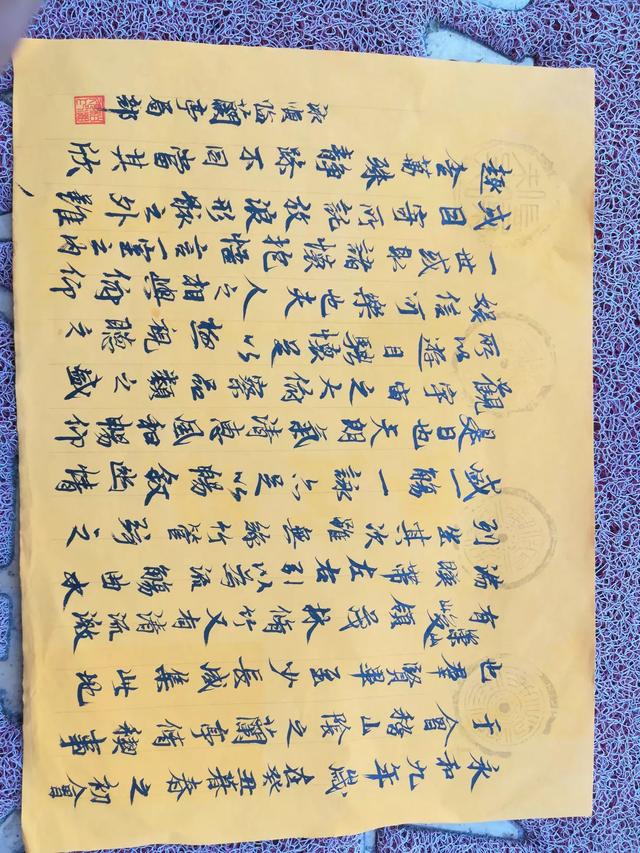 永和九年歲在癸丑暮春之初會
于會稽山陰之蘭亭脩禊事
也群賢畢至少長咸集此地
有崇山峻領茂林脩竹又有清流激
湍暎帶左右引以為流觴曲水
列坐其次雖無絲竹管弦之
盛一觴一詠亦足以暢敘幽情
是日也天朗氣清惠風和暢仰
觀宇宙之大俯察品類之盛
所以遊目騁懷足以極視聽之
娛信可樂也夫人之相與俯仰
一世或取諸懷抱悟言一室之內
或因寄所託放浪形骸之外雖
趣舍萬殊靜躁不同當其欣
臨蘭亭局部